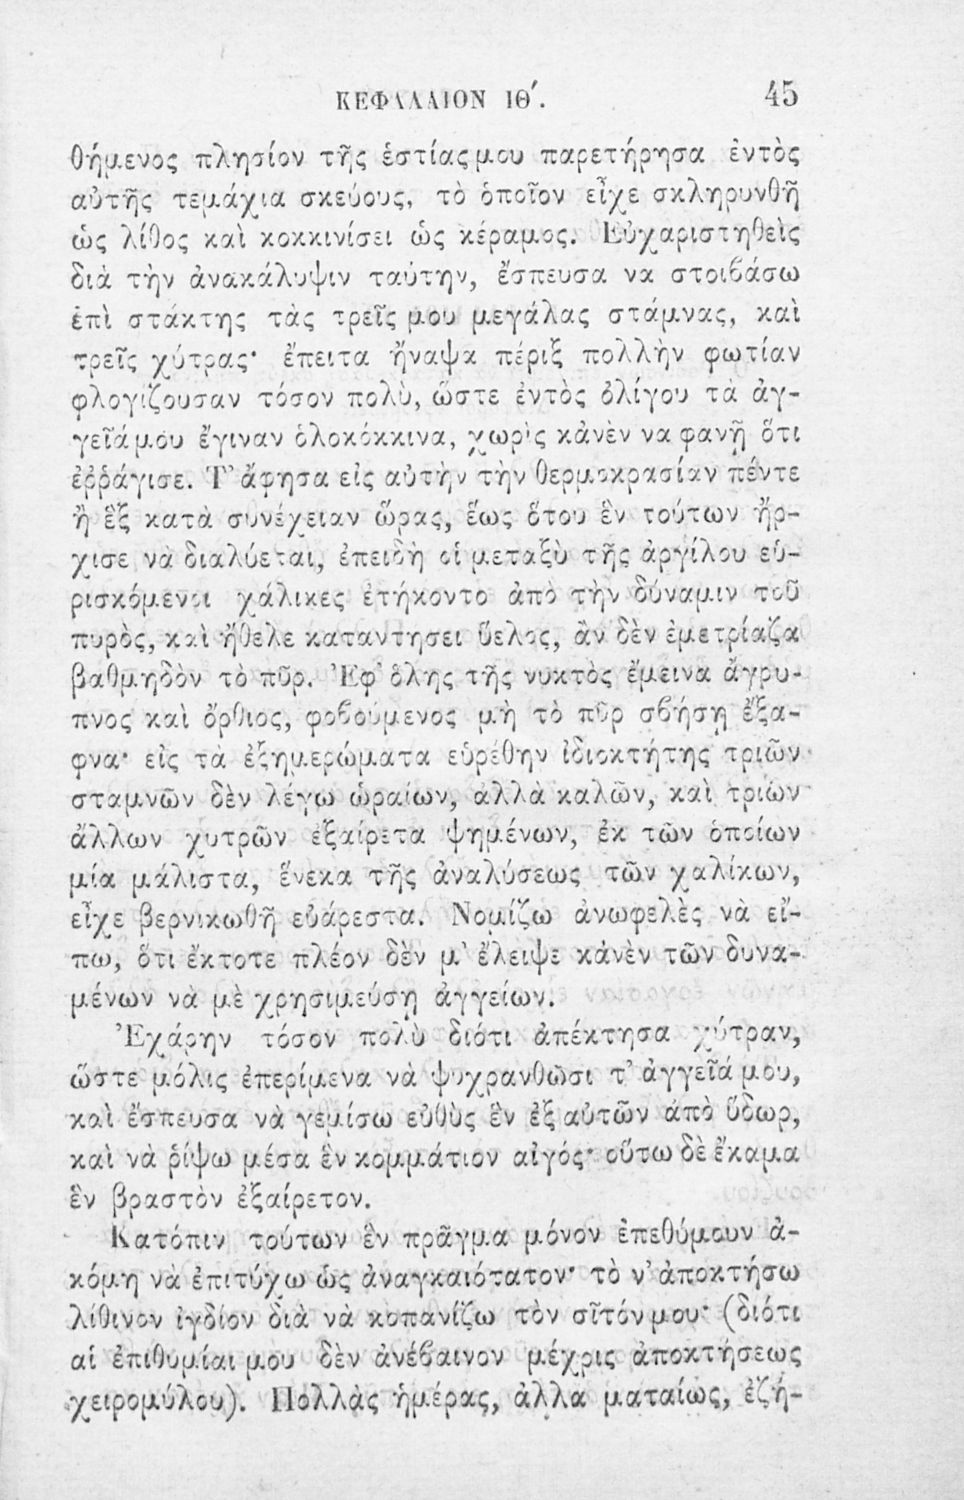 ΚΕΦΑΛΑΙΟΝ ΙΘ΄. 45
θήμενος πλησίον τῆς ἑστίας μου παρετήρησα ἐντὸς
αὐτῆς τεμάχια σκεύους, τὸ ὁποῖον εἶχε σκληρυνθῆ
ὡς λίθος καὶ κοκκινίσει ὡς κέραμος. Εὐχαριστηθεὶς
διὰ τὴν ἀνακάλυψιν ταύτην, ἔσπευσα να στοιβάσω
ἐπὶ στάκτης τὰς τρεῖς μου μεγάλας στάμνας, καὶ
τρεῖς χύτρας· ἔπειτα ἤναψα πέριξ πολλὴν φωτίαν
φλογίζουσαν τόσον πολὺ, ὥστε ἐντὸς ὀλίγου τὰ ἀγ-
γεῖά μου ἔγιναν ὁλοκόκκινα, χωρὶς κἀνὲν να φανῇ ὅτι
ἐῤῥάγισε. Τ' ἄφησα εἰς αὐτὴν τὴν θερμοκρασίαν πέντε
ἢ ἓξ κατὰ συνέχειαν ὥρας, ἕως ὅτου ἓν τούτων ἤρ-
χισε νὰ διαλύεται, ἐπειδὴ οἱ μεταξὺ τῆς ἀργίλου εὑ-
ρισκόμενοι χάλικες ἐτήκοντο ἀπὸ τὴν δύναμιν τοῦ
πυρὸς, καὶ ἤθελε καταντήσει ὕελος, ἂν δὲν ἐμετρίαζα
βαθμηδὸν τὸ πῦρ. Ἐφ' ὅλης τῆς νυκτὸς ἔμεινα ἄγρυ-
πνος καὶ ὄρθιος, φοβούμενος μὴ τὸ πῦρ σβήσῃ ἔξα-
φνα· εἰς τὰ ἐξημερώματα εὑρέθην ἰδιοκτήτης τριῶν
σταμνῶν δὲν λέγω ὡραίων, ἀλλὰ καλῶν, καὶ τριῶν
ἄλλων χυτρῶν ἐξαίρετα ψημένων, ἐκ τῶν ὁποίων
μία μάλιστα, ἕνεκα τῆς ἀναλύσεως τῶν χαλίκων,
εἶχε βερνικωθῆ εὐάρεστα. Νομίζω ἀνωφελὲς νὰ εἴ-
πω, ὅτι ἔκτοτε πλέον δὲν μ' ἔλειψε κἀνὲν τῶν δυνα-
μένων νὰ μὲ χρησιμεύσῃ ἀγγείων.
Ἐχάρην τόσον πολὺ διότι ἀπέκτησα χύτραν,
ὥστε μόλις ἐπερίμενα νὰ ψυχρανθῶσι τ' ἀγγεῖά μου,
καὶ ἔσπευσα νὰ γεμίσω εὐθὺς ἓν ἐξ αὐτῶν ἀπὸ ὕδωρ,
καὶ νὰ ῥίψω μέσα ἓν κομμάτιον αἰγός· οὕτω δὲ ἔκαμα
ἓν βραστὸν ἐξαίρετον.
Κατόπιν τούτων ἓν πρᾶγμα μόνον ἐπεθύμουν ἀ-
κόμη νὰ ἐπιτύχω ὡς ἀναγκαιότατον· τὸ ν' ἀποκτήσω
λίθινον ἰγδίον διὰ νὰ κοπανίζω τὸν σῖτόν μου· (διότι
αἱ ἐπιθυμίαι μου δὲν ἀνέβαινον μέχρις ἀποκτήσεως
χειρομύλου). Πολλὰς ἡμέρας, ἀλλὰ ματαίως, ἐζή-